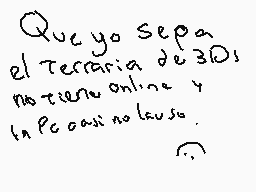 Que yo sepa
el Terraria de 3Ds
no tiene online y
en Pc casi no lo uso.